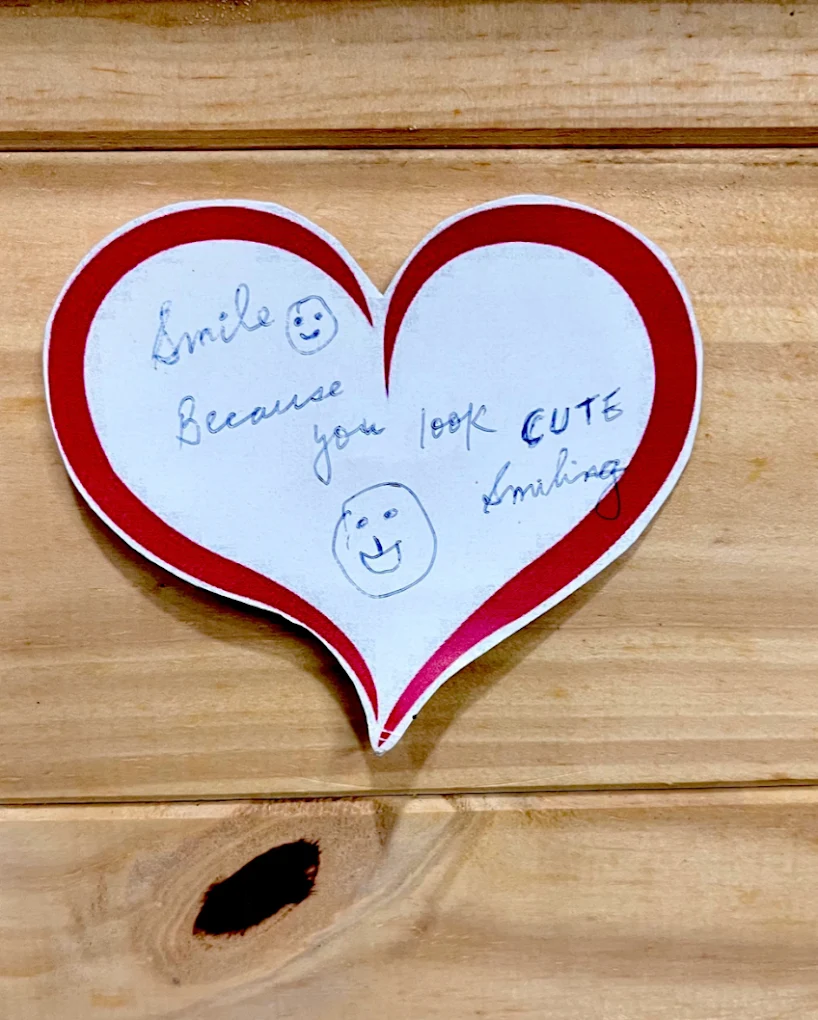 Smile
Because
you look CUTE
Smiling